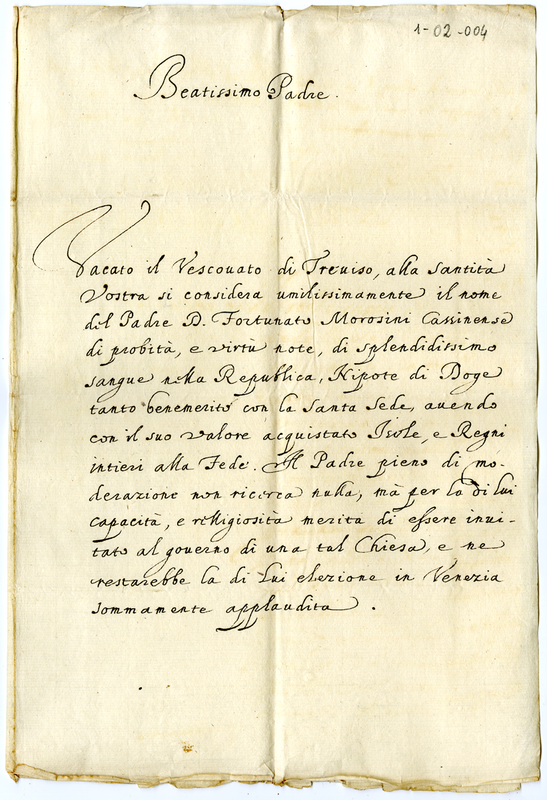 1-02-004
Beatissimo Padre.
Vacato il Vescouato di Treuiso, alla Santità
Vostra si considera umilissimamente il nome
del Padre D. Fortunato Morosini Cassinense
di probità, e virtù note, di splendidissimo
sangue nella Republica, Nipote di Doge
tanto benemerito con la Santa Sede, auendo
con il suo valore acquistato Isole, e Regni
intieri alla Fede. Il Padre pieno di mo-
derazione non ricerca nulla, mà per la di lui
capacità, e religiosità merita di essere inui-
tato al gouerno di una tal Chiesa, e ne
restarebbe la di lui elezione in Venezia
sommamente applaudita.